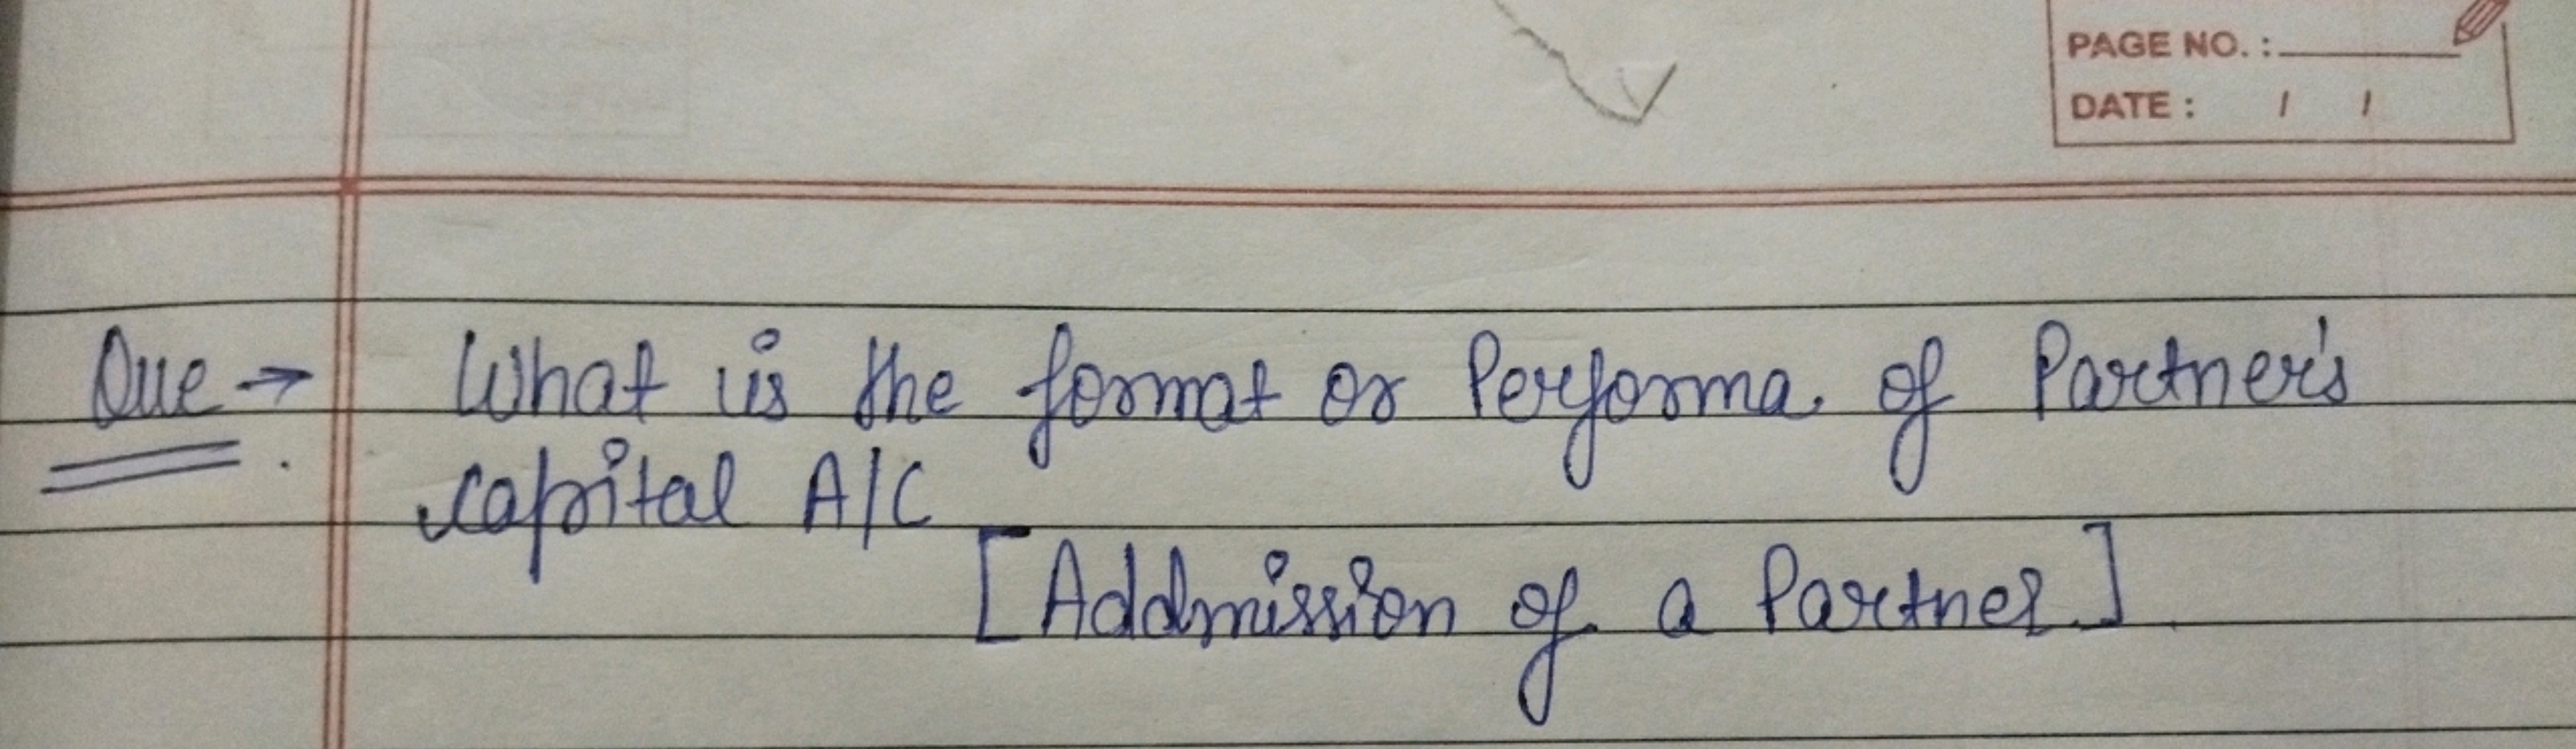 PAGE NO. :
DATE : / /
Que → What is the format or Performa of Partner's
capital A/C
[Addmission of a Partner]